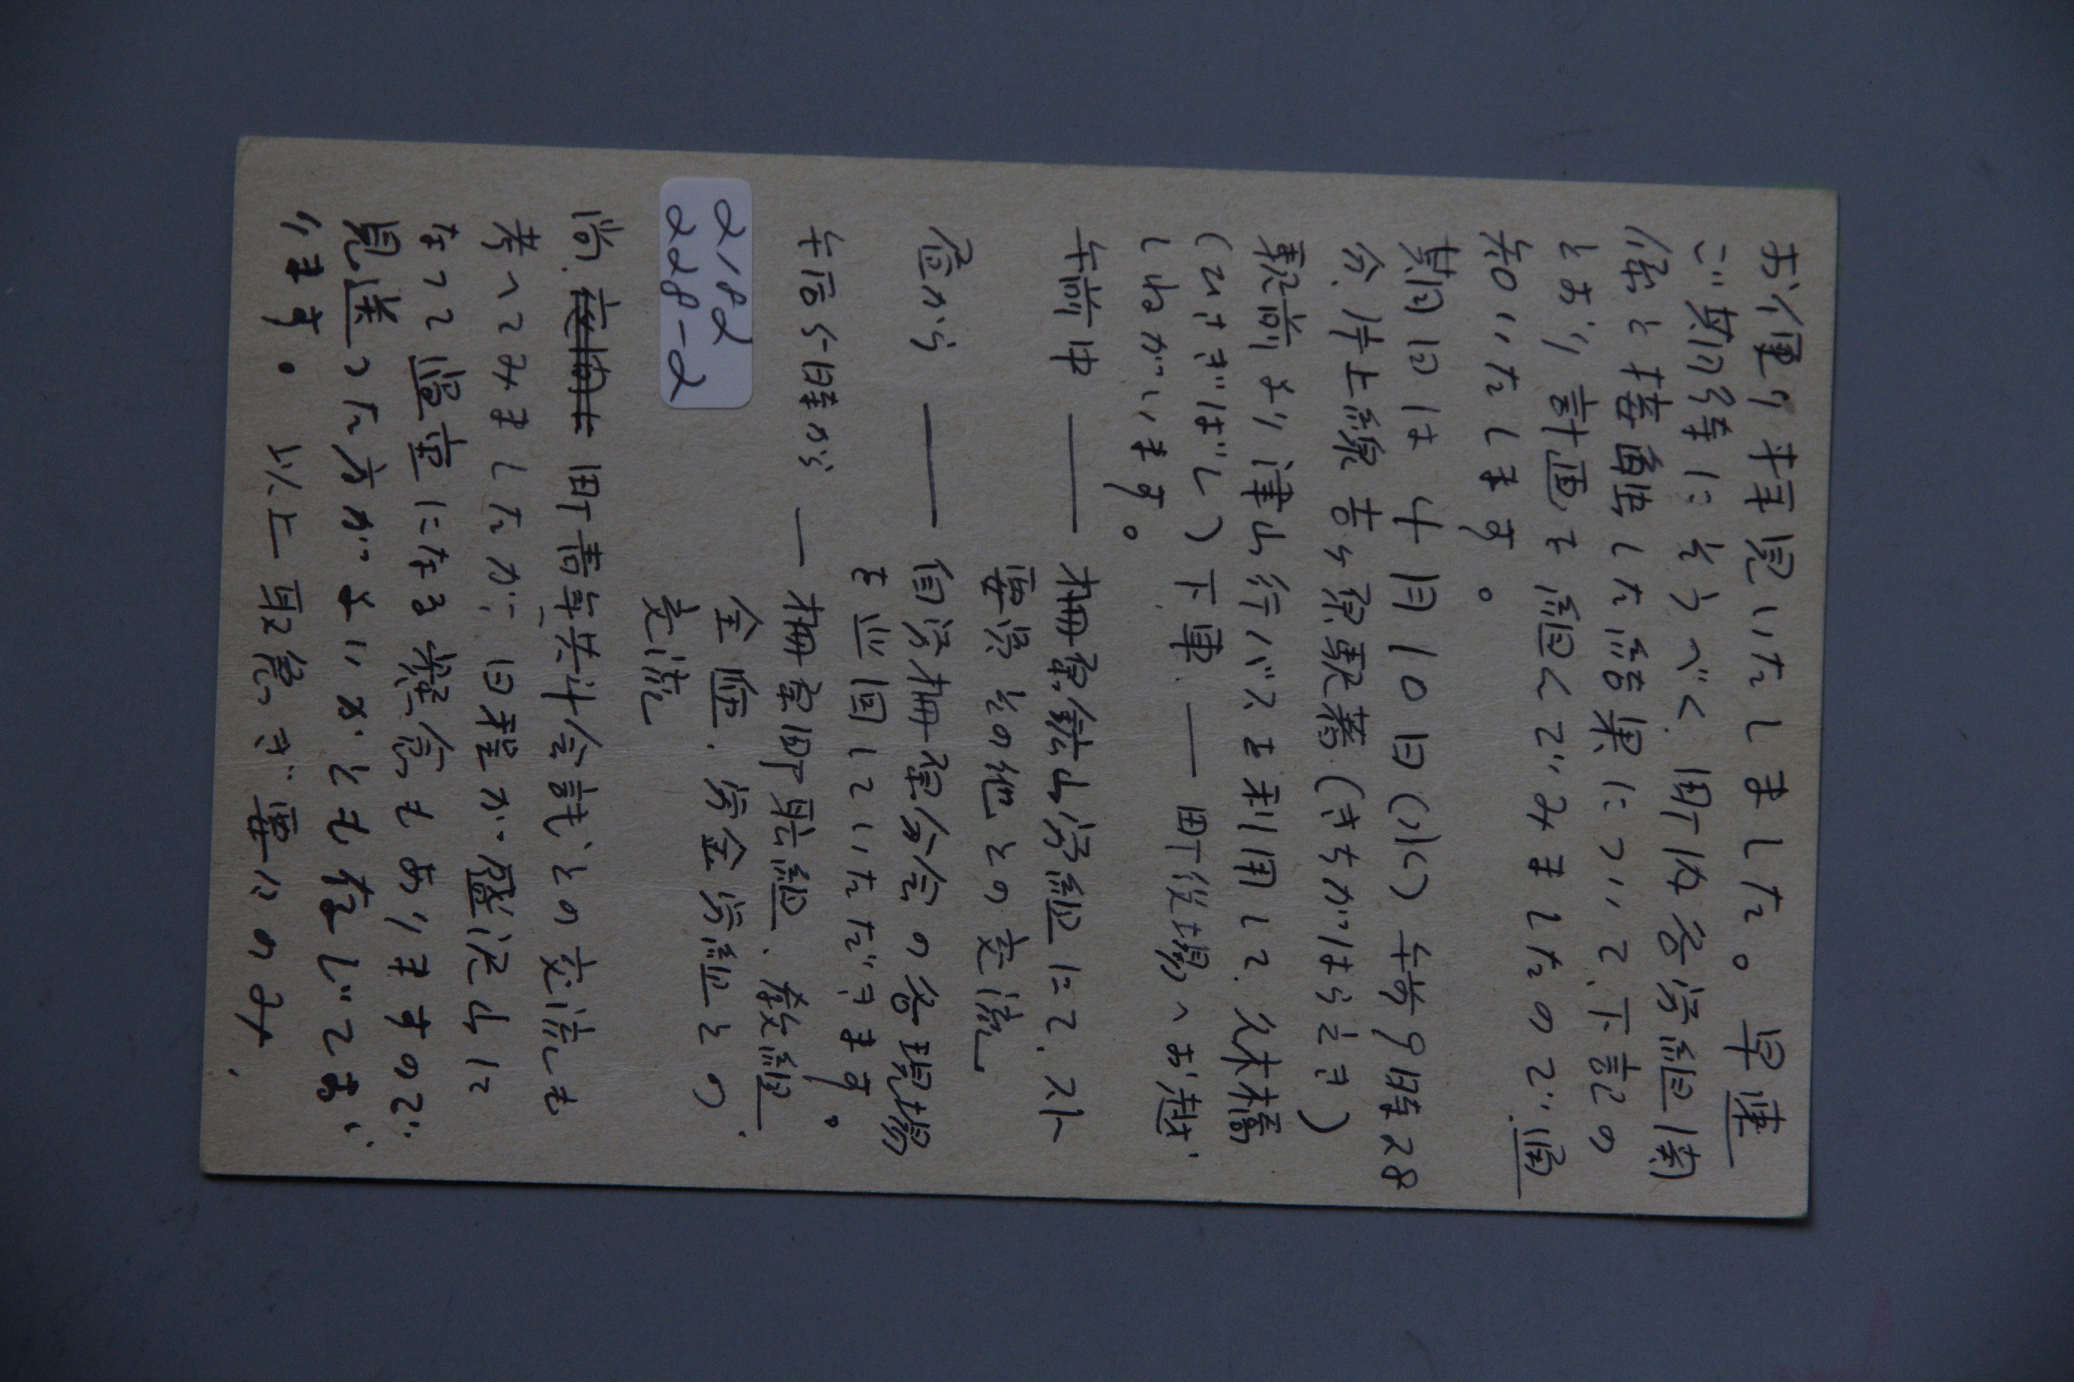 お便り拝見いたしました。早速
ご期待にそうべく、町内各労組関
係と接触した結果について、下記の
とおり計画を組んでみましたので、通
知いたします。
期日は 十月10日(水) 午前9時28
分、片上線 吉ヶ原駅着(きちがはらえき)
駅前より津山行バスを利用して、久木橋
(ひさぎばし)下車、― 町役場へお越
しねがいます。
午前中 ― 柵原鉱山労組にて、スト
要員その他との交流
昼から ― 自労柵原分会の各現場
を巡回していただきます。
午后5時から ― 柵原町職組、教組
全逓、労金労組との
交流
2182
228-2
尚、町青年共斗会議との交流も
考へてみましたが、日程が盛沢山に
なって過重になる懸念もありますので
見送った方がよいかとも存じてお
ります。以上取急ぎ要々のみ、